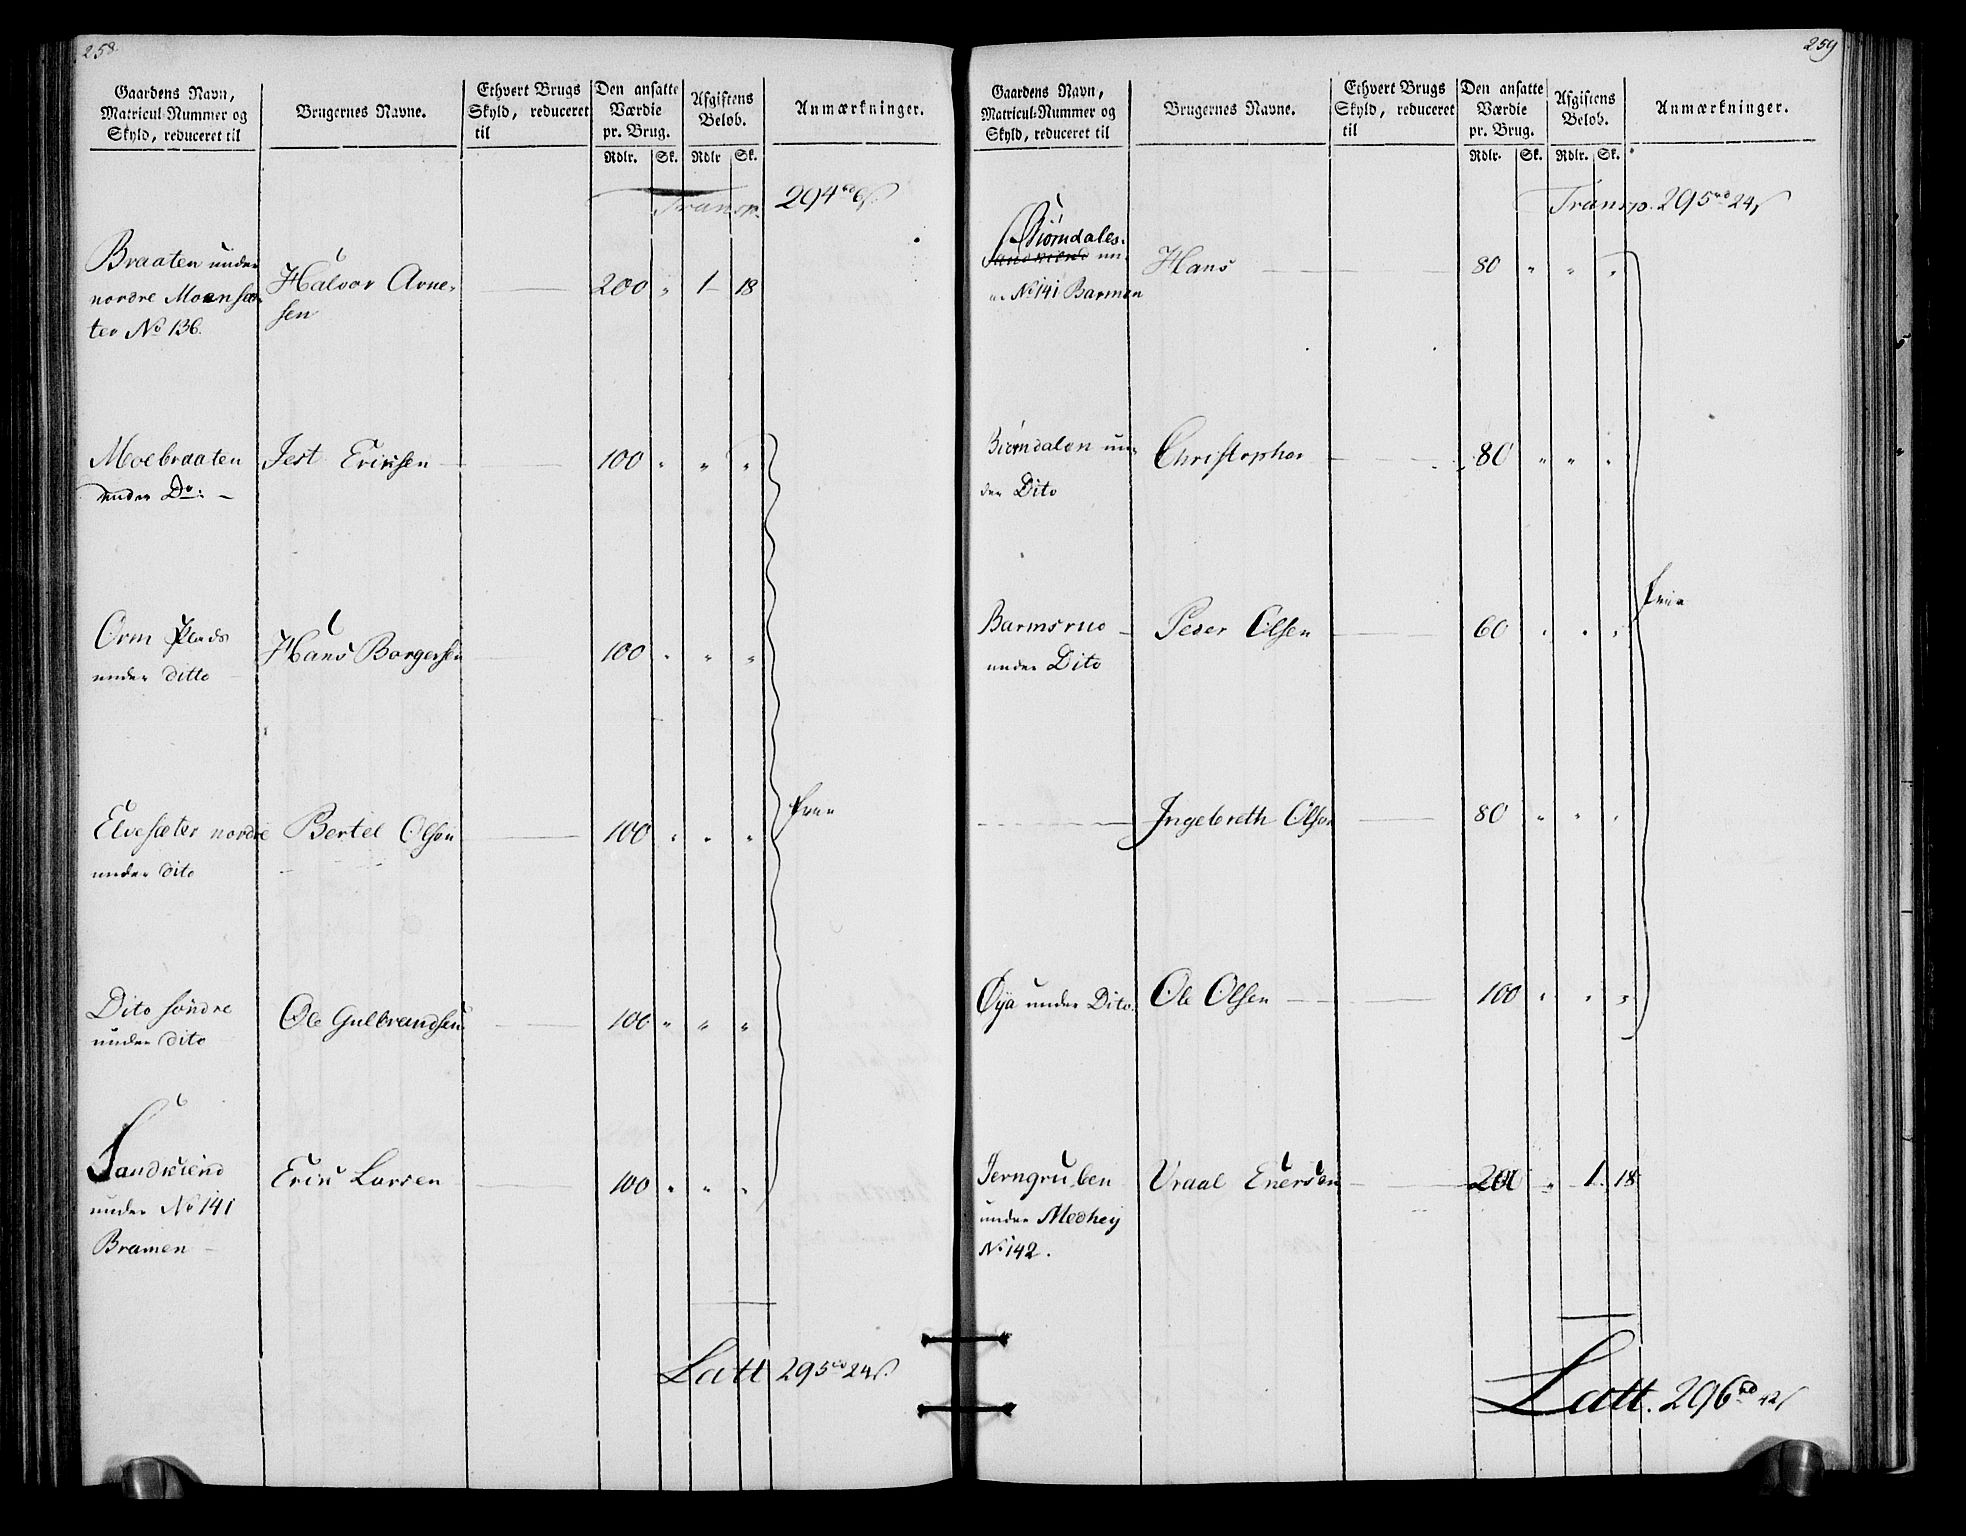 258
Gaardens Navn, Matricul-Nummer og Skyld, reduceret til
Brugernes Navne.
Ethvert Brugs Skyld, reduceret til
Den ansatte Værdie pr. Brug.
Afgiftens Beløb.
Anmærkninger.
Rdlr. Sk. Rdlr Sk.
Transp. 294 rd 6 s.
Braaten under Halvor Arne- 200 " 1 18
nordre Moensæ- sen
ter No 136.
Moebraaten Jest Ericksen 100 " " "
under Do: -
Orm Plads Hans Borgersen 100 " " "
under ditto
Elvesæter nordre Bertel Olsen 100 " " " frie
under dito
Dito söndre Ole Gulbrandsen 100 " " "
under dito
Sandwiend Erik Larsen 100 " " "
under No 141
Bramen
Latt 295 rd 24 s.
259
Gaardens Navn, Matricul-Nummer og Skyld, reduceret til
Brugernes Navne.
Ethvert Brugs Skyld, reduceret til
Den ansatte Værdie pr. Brug.
Afgiftens Beløb.
Anmærkninger.
Rdlr. Sk. Rdlr. Sk.
Transp. 295 rd 24 s
Biörndales.
Sandwiend un- Hans 80 " " "
No 141 Barmen
Biörndalen un- Christopher 80 " " "
der Dito
Barmsrud Peder Olsen 60 " " " frie
under Dito
Ingebreth Olsen 80 " " "
Øya under Dito. Ole Olsen 100 " " "
Jerngruben Vraal Enersen 200 " 1. 18
under Medhey
No 142.
Latt. 296 rd 42 s